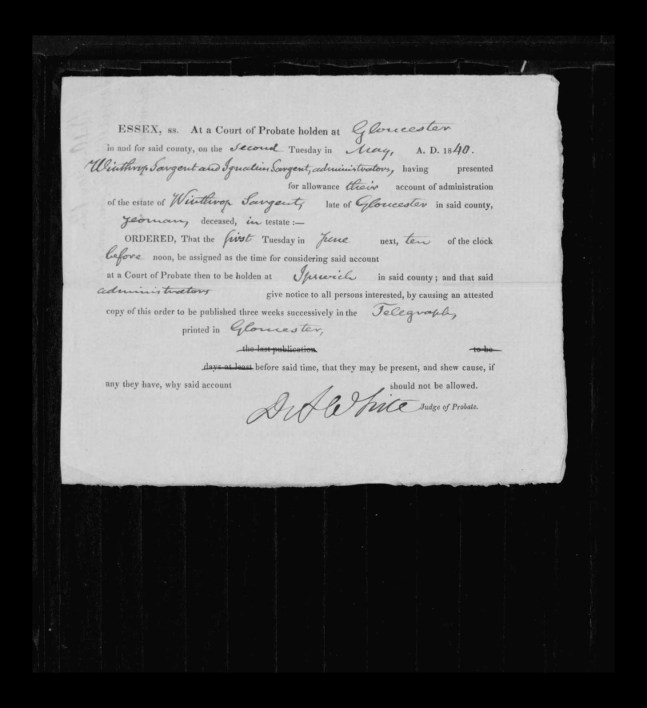 ESSEX, ss. At a Court of Probate holden at Gloucester
in and for said county, on the second Tuesday in May, A. D. 1840.
Winthrop Sargent and Ignatius Sargent, administrators, having presented
for allowance their account of administration
of the estate of Winthrop Sargent, late of Gloucester in said county,
yeoman, deceased, in testate :—
ORDERED, That the first Tuesday in June next, ten of the clock
before noon, be assigned as the time for considering said account
at a Court of Probate then to be holden at Ipswich in said county; and that said
administrators give notice to all persons interested, by causing an attested
copy of this order to be published three weeks successively in the Telegraph,
printed in Gloucester,
the last publication to be
days at least before said time, that they may be present, and shew cause, if
any they have, why said account should not be allowed.
D. A. White Judge of Probate.